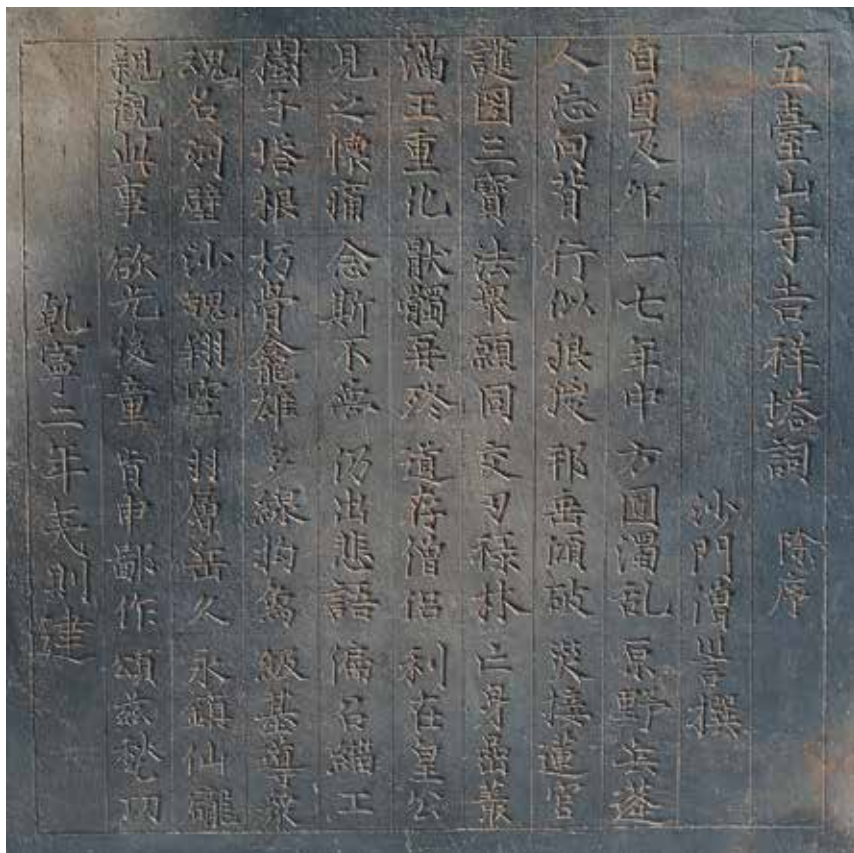 五臺山寺吉祥塔詞 除序
沙門僧訔撰
自酉及卯 一七年中 方圓濁乱 原野兵蓬
人忘向背 行似狼㹱 邦垂傾破 災接蓮宮
護國三寶 法衆願同 交刃祿林 亡身嵒叢
滿王重化 猒髑再終 道存僧侶 利在皇公
見之懷痛 念斯不無 仍出悲語 備召緇工
樹子塔根 朽骨龕雄 多線拘寫 級甚尊衆
魂名刻壁 沙魄翔空 羽層岳久 永鎮仙籬
親觀此事 欲光後童 旨申鄙作 頌兹愁功
乹寧二年夷則建